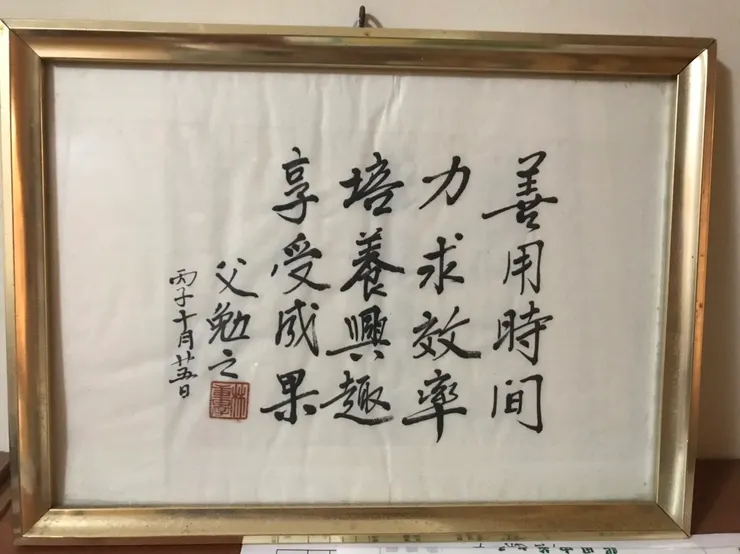 善用時间
力求效率
培養興趣
享受成果
父勉之
丙子十月廿五日